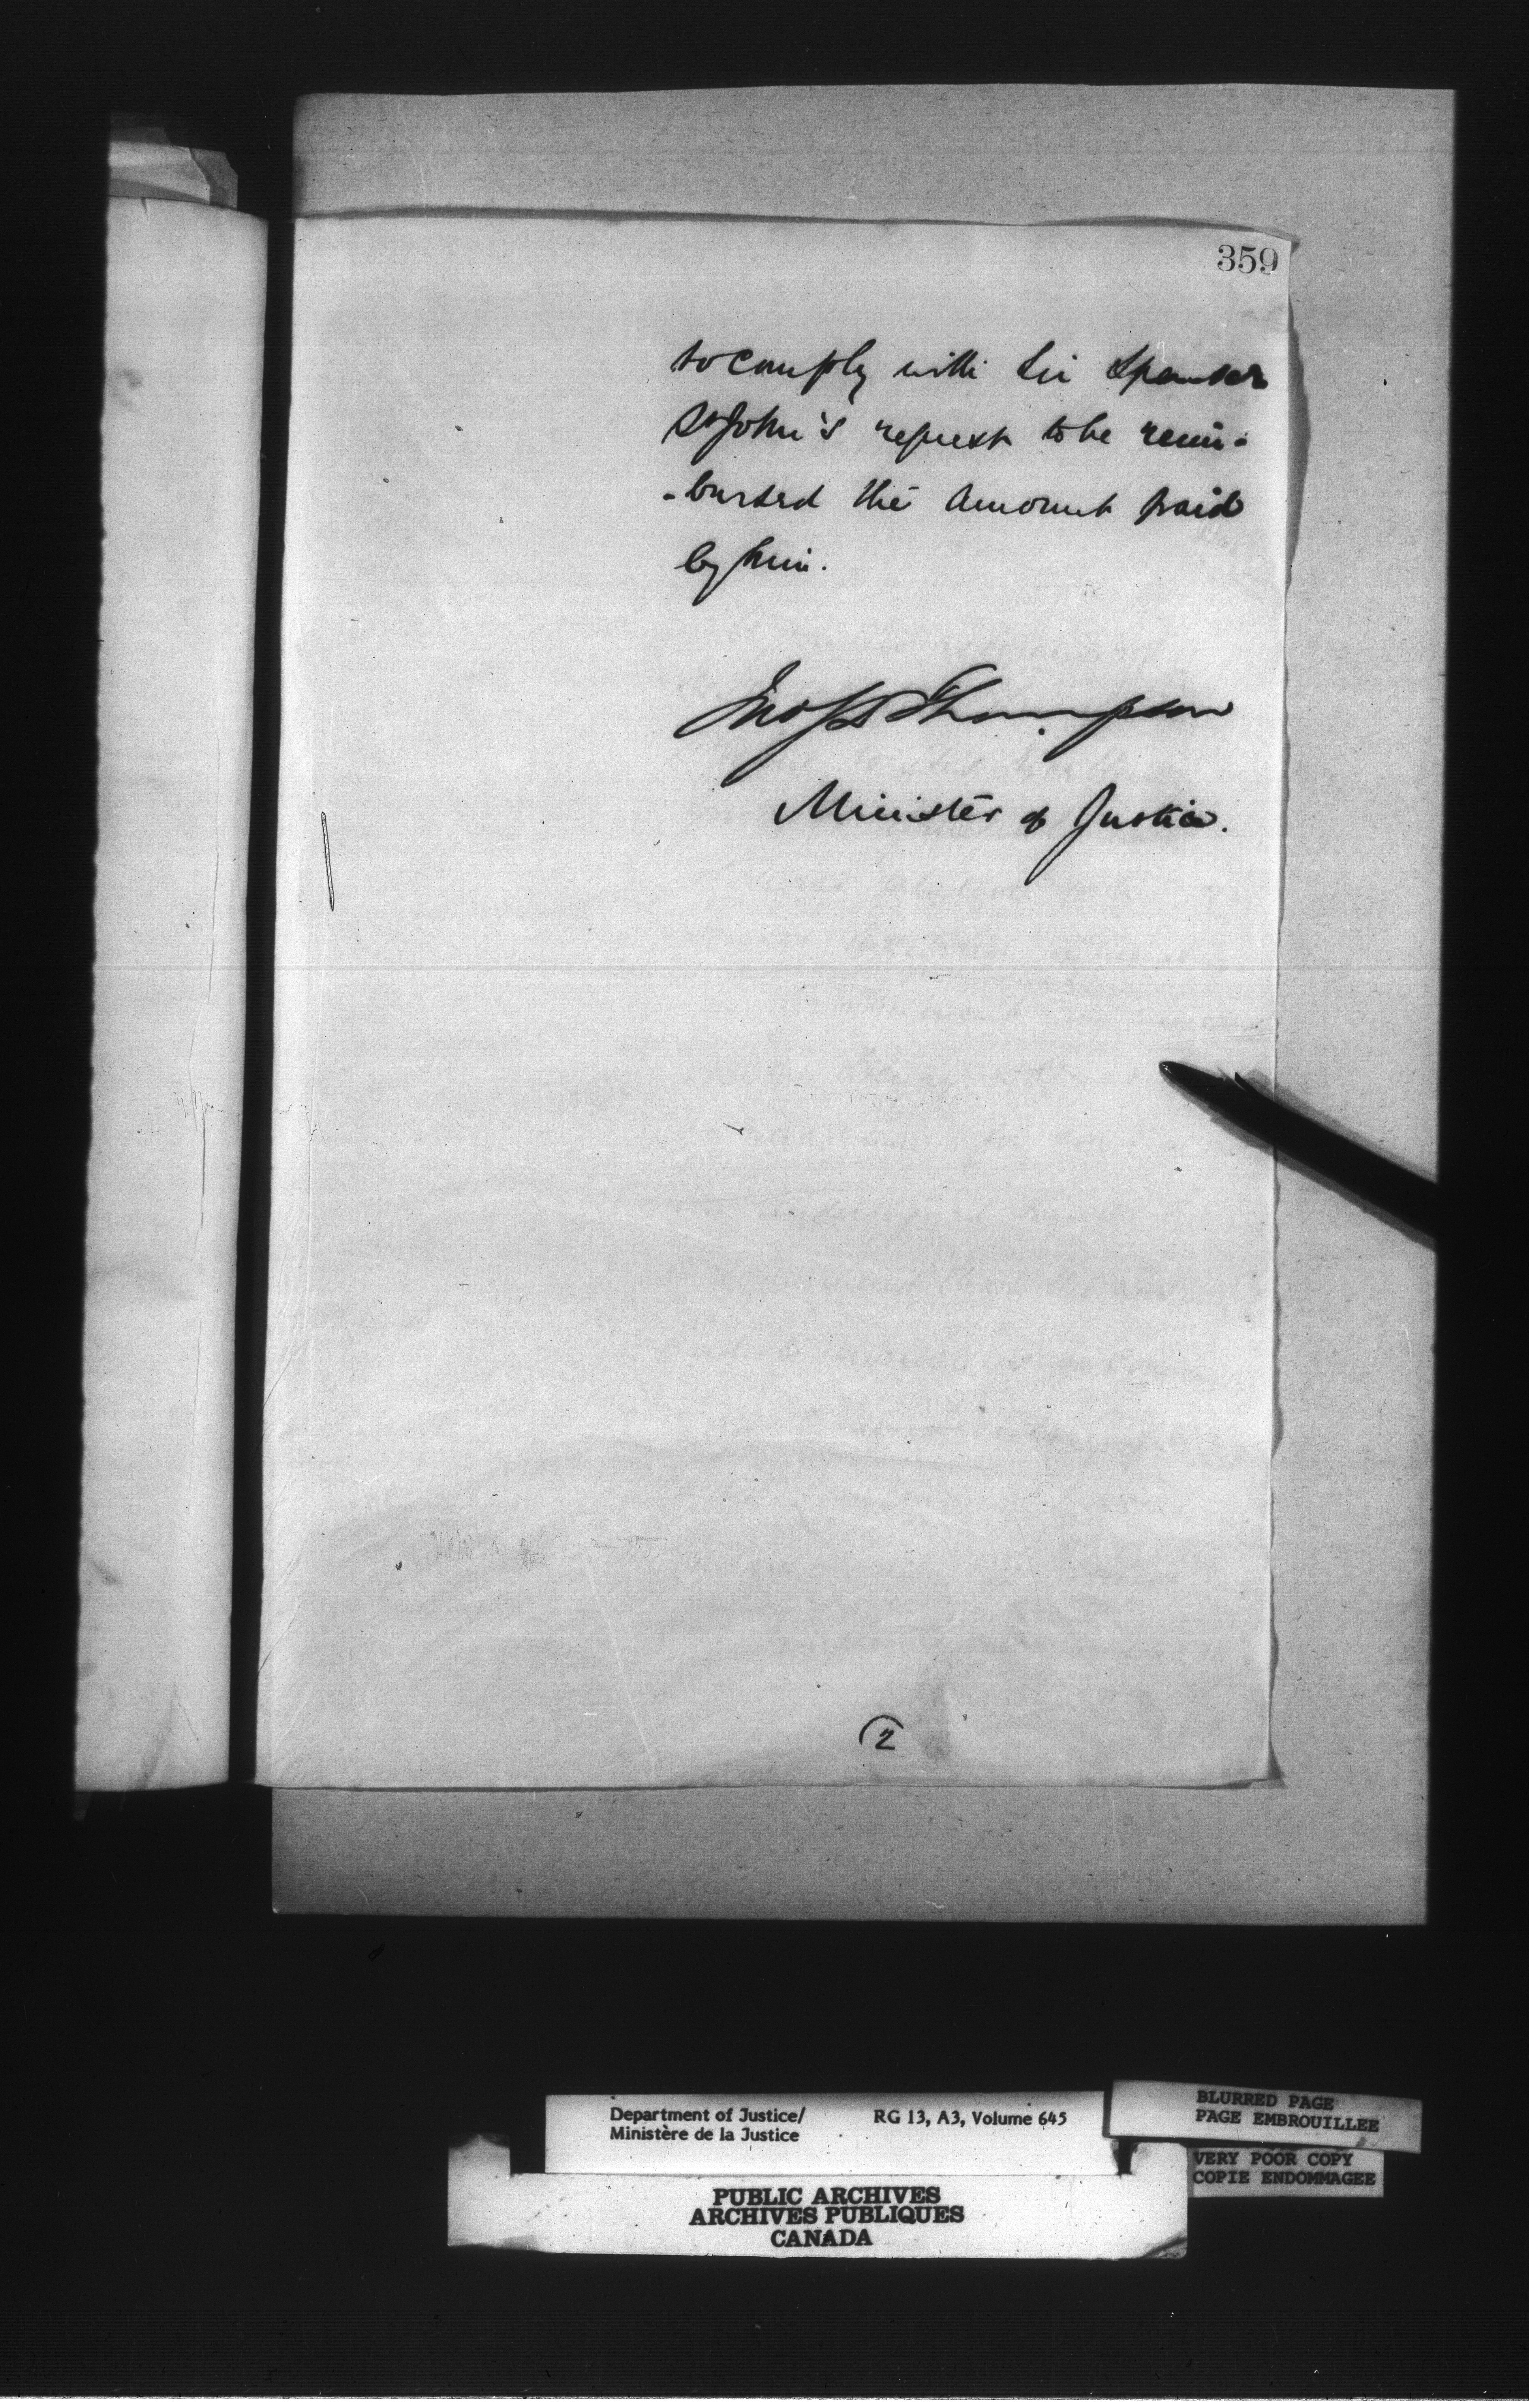 359
to comply with Sir Spenser
St John's request to be reim-
-bursed the amount paid
by him.
Jno S D Thompson
Minister of Justice.
2
Department of Justice/
Ministère de la Justice
RG 13, A3, Volume 645
BLURRED PAGE
PAGE EMBROUILLEE
VERY POOR COPY
COPIE ENDOMMAGEE
PUBLIC ARCHIVES
ARCHIVES PUBLIQUES
CANADA